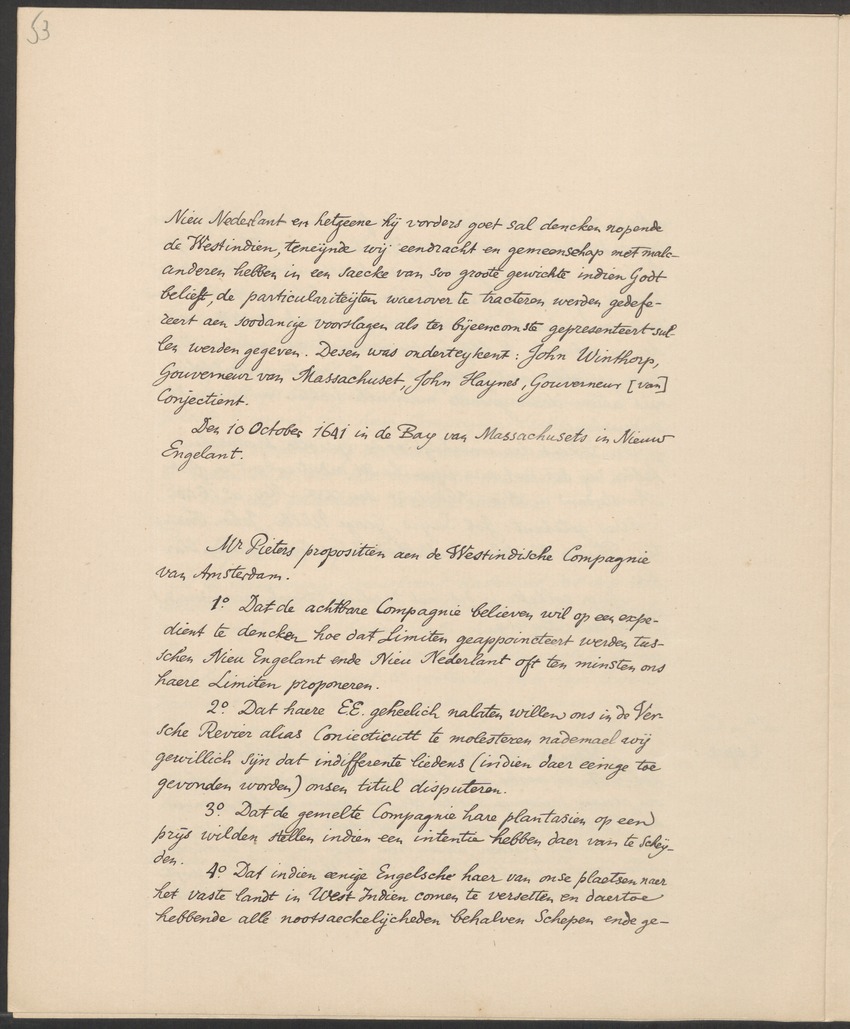 53
Nieu Nederlant en hetgeene hij vorders goet sal dencken nopende
de Westindien, teneijnde wij eendracht en gemeenschap met malc-
anderen hebben in een saecke van soo groote gewichte indien Godt
belieft, de particulariteijten waerover te tracteren werden gedefe-
reert aen soodanige voorslagen als ter bijeencomste gepresenteert sul-
len werden gegeven. Desen was onderteykent: John Winthorp,
Gouverneur van Massachuset, John Haynes, Gouverneur [van]
Conjectient.
Den 10 October 1641 in de Bay van Massachusets in Nieuw
Engelant.
Mr Pieters propositien aen de Westindische Compagnie
van Amsterdam.
1o Dat de achtbare Compagnie believen wil op een expe-
dient te dencken hoe dat Limiten geappoincteert werden tus-
schen Nieu Engelant ende Nieu Nederlant oft ten minsten ons
haere Limiten proponeren.
2o Dat haere E.E. geheelich nalaten willen ons in de Ver-
sche Revier alias Coniecticutt te molesteren nademael wij
gewillich sijn dat indifferente liedens (indien daer eenige toe
gevonden worden) onsen titul disputeren.
3o Dat de gemelte Compagnie hare plantasien op een
prijs wilden stellen indien een intentie hebben daer van te scheij-
den.
4o Dat indien eenige Engelsche haer van onse plaetsen naer
het vaste landt in West Indien comen te versetten en daertoe
hebbende alle nootsaeckelijcheden behalven Schepen ende ge-